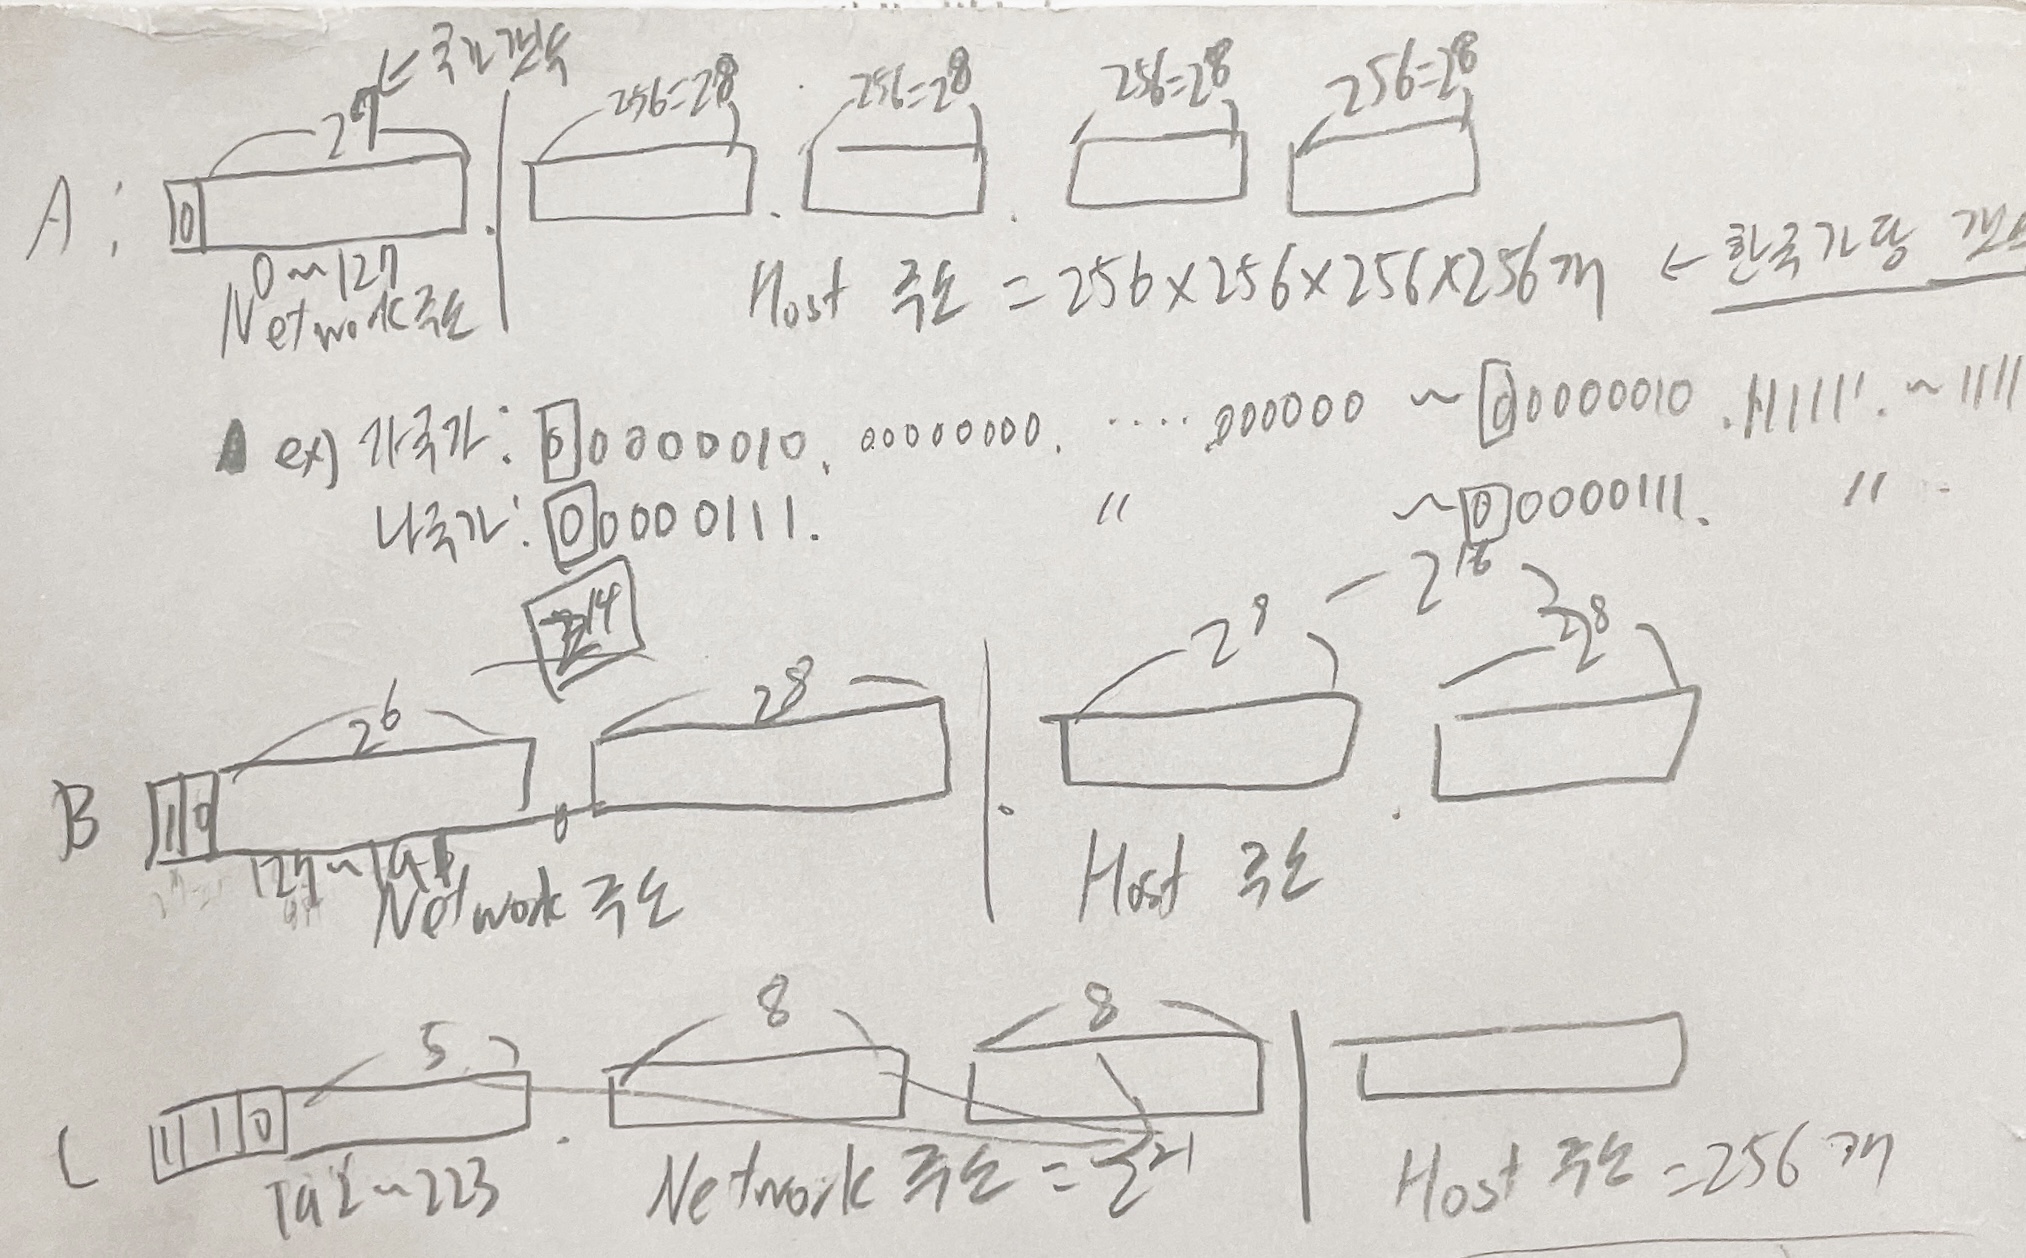 2^7 ⇐ 국가 갯수
256=2^8 256=2^8 256=2^8 256=2^8
A : 0 . . .
0~127
Network 주소
Host 주소 = 256×256×256×256개 ← 한국가당 갯수
ex) 가국가: 00000010. 00000000. ····· 000000 ~ 00000010 . 111111. ~ 1111
나국가: 00000111. " ~ 00000111. "
2^14 2^16
2^6 2^8 2^8 2^8
B 10 . . .
127~191
Network 주소 Host 주소
5 8 8
C 110 .
192~223 Network 주소 = 2^21 Host 주소 = 256개